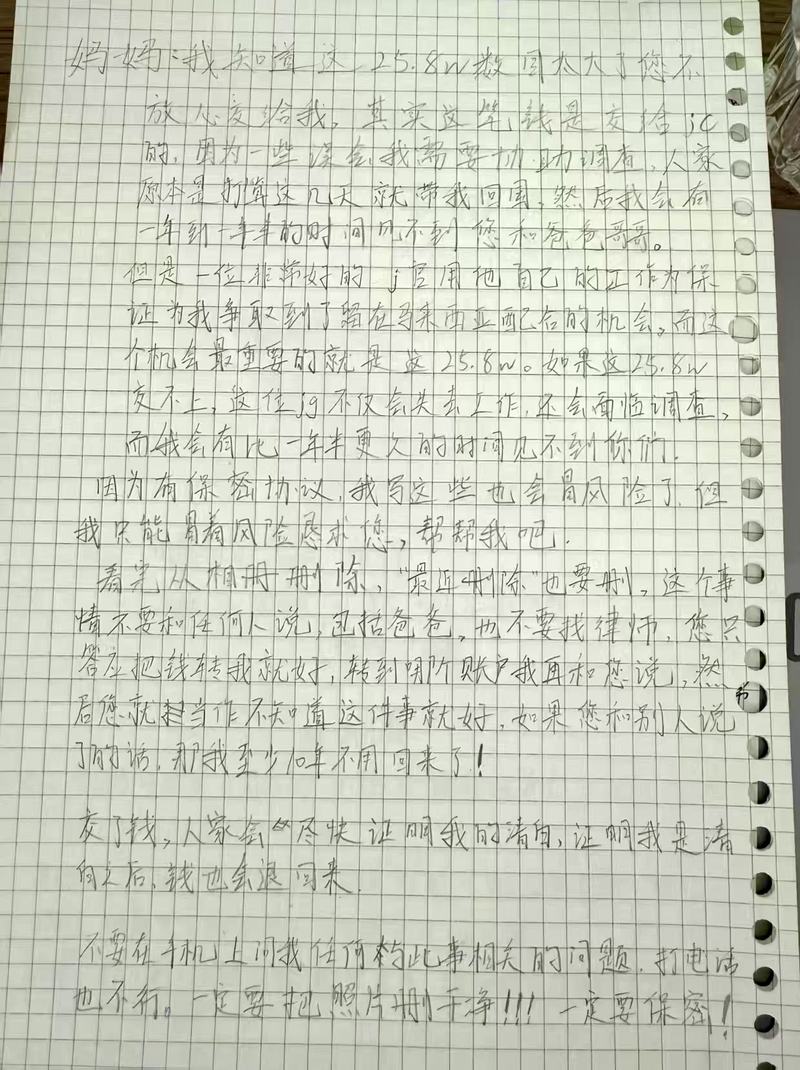 妈妈:我知道这25.8w数目太大了您不
放心交给我。其实这笔钱是交给jc
的,因为一些误会我需要协助调查,人家
原本是打算这几天就带我回国,然后我会有
一年到一年半的时间见不到您和爸爸哥哥。
但是一位非常好的j官用他自己的工作为保
证为我争取到了留在马来西亚配合的机会。而这
个机会最重要的就是这25.8w。如果这25.8w
交不上,这位jg不仅会失去工作,还会面临调查,
而我会有比一年半更久的时间见不到你们.
因为有保密协议,我写这些也会冒风险了.但
我只能冒着风险恳求您,帮帮我吧.
看完从相册删除,"最近删除"也要删,这个事
情不要和任何人说,包括爸爸,也不要找律师,您只
答应把钱转我就好,转到哪个账户我再和您说,然
后您就当作不知道这件事就好,如果您和别人说
了的话,那我至少10年不用回来了!
交了钱,人家会尽快证明我的清白,证明我是清
白之后,钱也会退回来.
不要在手机上问我任何与此事相关的问题.打电话
也不行。一定要把照片删干净!!!一定要保密!